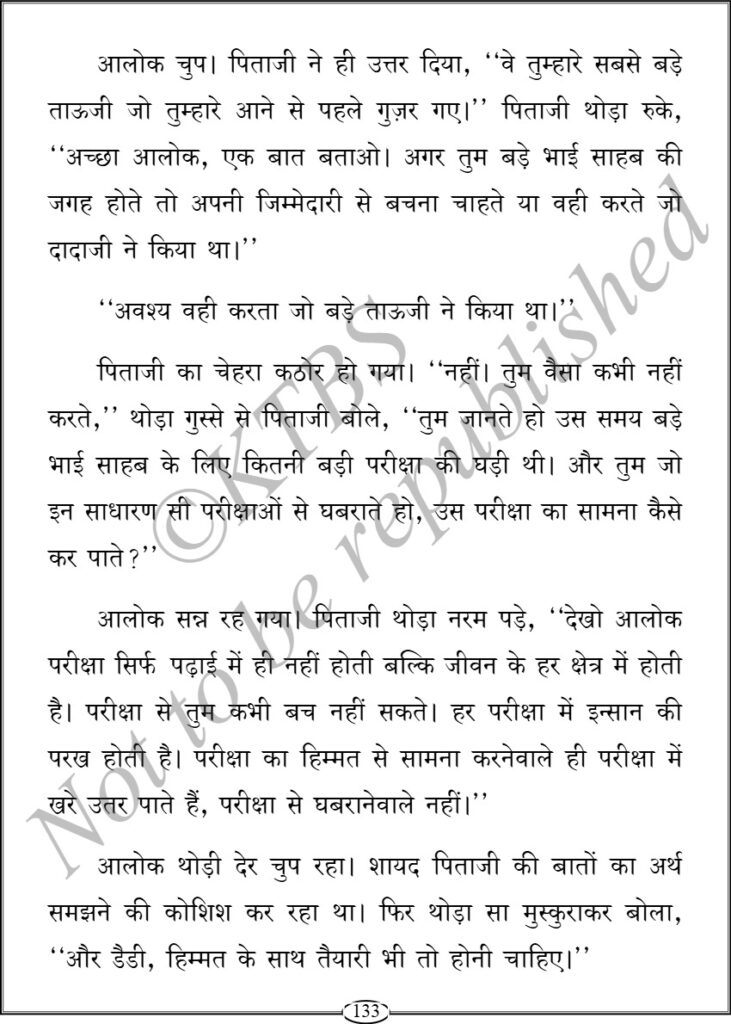 आलोक चुप। पिताजी ने ही उत्तर दिया, ‘‘वे तुम्हारे सबसे बड़े
ताऊजी जो तुम्हारे आने से पहले गुज़र गए।’’ पिताजी थोड़ा रुके,
‘‘अच्छा आलोक, एक बात बताओ। अगर तुम बड़े भाई साहब की
जगह होते तो अपनी जिम्मेदारी से बचना चाहते या वही करते जो
दादाजी ने किया था।’’
‘‘अवश्य वही करता जो बड़े ताऊजी ने किया था।’’
पिताजी का चेहरा कठोर हो गया। ‘‘नहीं। तुम वैसा कभी नहीं
करते,’’ थोड़ा गुस्से से पिताजी बोले, ‘‘तुम जानते हो उस समय बड़े
भाई साहब के लिए कितनी बड़ी परीक्षा की घड़ी थी। और तुम जो
इन साधारण सी परीक्षाओं से घबराते हो, उस परीक्षा का सामना कैसे
कर पाते?’’
आलोक सन्न रह गया। पिताजी थोड़ा नरम पड़े, ‘‘देखो आलोक
परीक्षा सिर्फ पढ़ाई में ही नहीं होती बल्कि जीवन के हर क्षेत्र में होती
है। परीक्षा से तुम कभी बच नहीं सकते। हर परीक्षा में इन्सान की
परख होती है। परीक्षा का हिम्मत से सामना करनेवाले ही परीक्षा में
खरे उतर पाते हैं, परीक्षा से घबरानेवाले नहीं।’’
आलोक थोड़ी देर चुप रहा। शायद पिताजी की बातों का अर्थ
समझने की कोशिश कर रहा था। फिर थोड़ा सा मुस्कुराकर बोला,
‘‘और डैडी, हिम्मत के साथ तैयारी भी तो होनी चाहिए।’’
©KTBS
Not to be republished
133